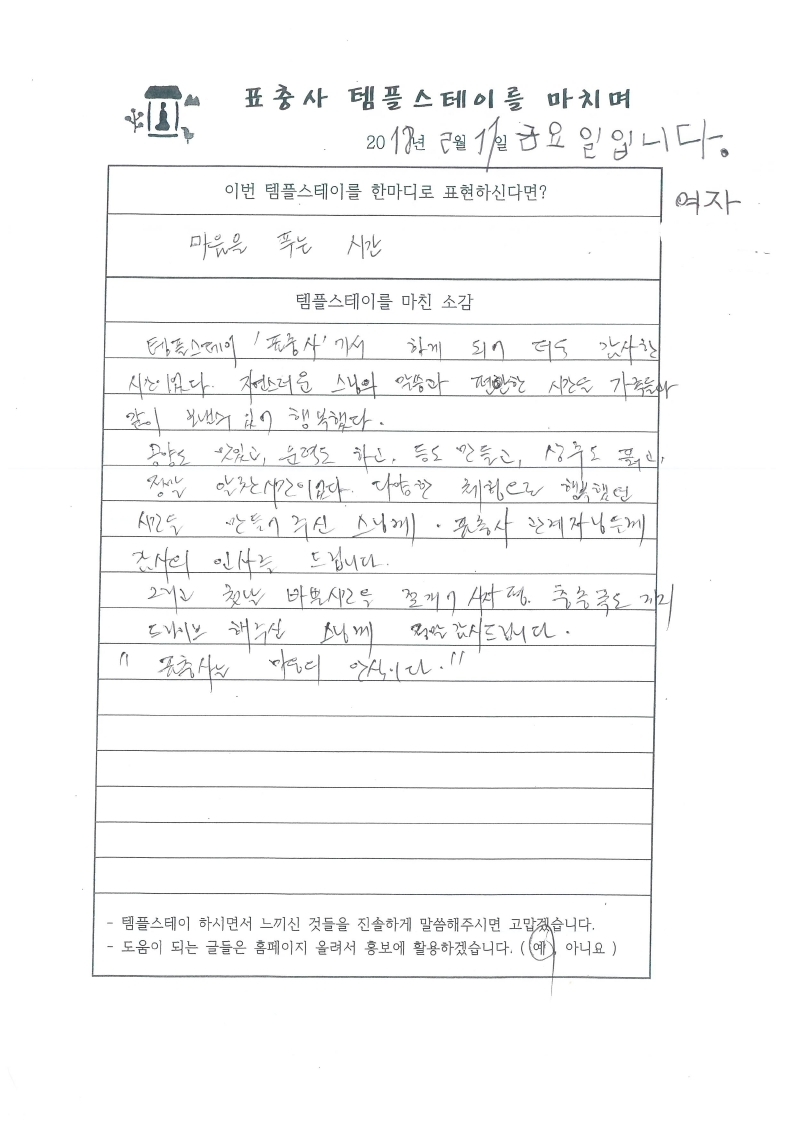 표충사 템플스테이를 마치며
2018년 2월 17일 금요일입니다.
여자
이번 템플스테이를 한마디로 표현하신다면?
마음을 푸는 시간
템플스테이를 마친 소감
템플스테이 '표충사'에서 함께 되어 너무 감사한
시간이었다. 자연스러운 스님의 말씀과 편안한 시간을 가족들과
같이 보낼수 있어 행복했다.
공양도 맛있고, 운력도 하고, 등도 만들고, 상추도 뜯고,
정말 알찬시간이었다. 다양한 체험으로 행복했던
시간을 만들어 주신 스님께. 표충사 관계자님들께
감사의 인사를 드립니다.
그리고 첫날 바쁜시간을 쪼개어 사자평. 층층폭도 까지
드라이브 해주신 스님께 정말감사드립니다.
"표충사는 마음의 안식이다."
- 템플스테이 하시면서 느끼신 것들을 진솔하게 말씀해주시면 고맙겠습니다.
- 도움이 되는 글들은 홈페이지 올려서 홍보에 활용하겠습니다. ( 예, 아니요 )